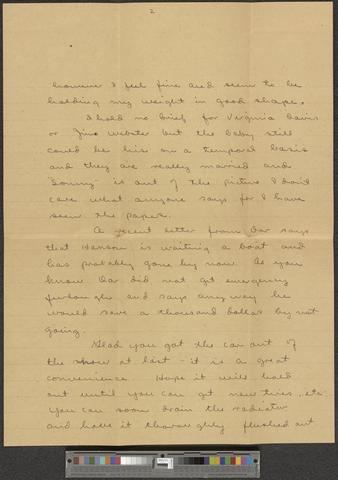 2
however I feel fine and seem to be
holding my weight in good shape.
I hold no brief for Virginia Davis
or Jim Webster but the baby still
could be his on a temporal basis
and they are really married and
"Sonny" is out of the picture I don't
care what anyone says for I have
seen the papers.
A recent letter from says
that Hanson is waiting a boat and
has probably gone by now. As you
know did not get emergency
furlough and says any way he
would save a thousand dollars by not
going.
Glad you got the car out of
the snow at last - it is a great
convenience. Hope it will hold
out until you can get new tires, etc.
You can soon drain the radiator
and have it thoroughly flushed out